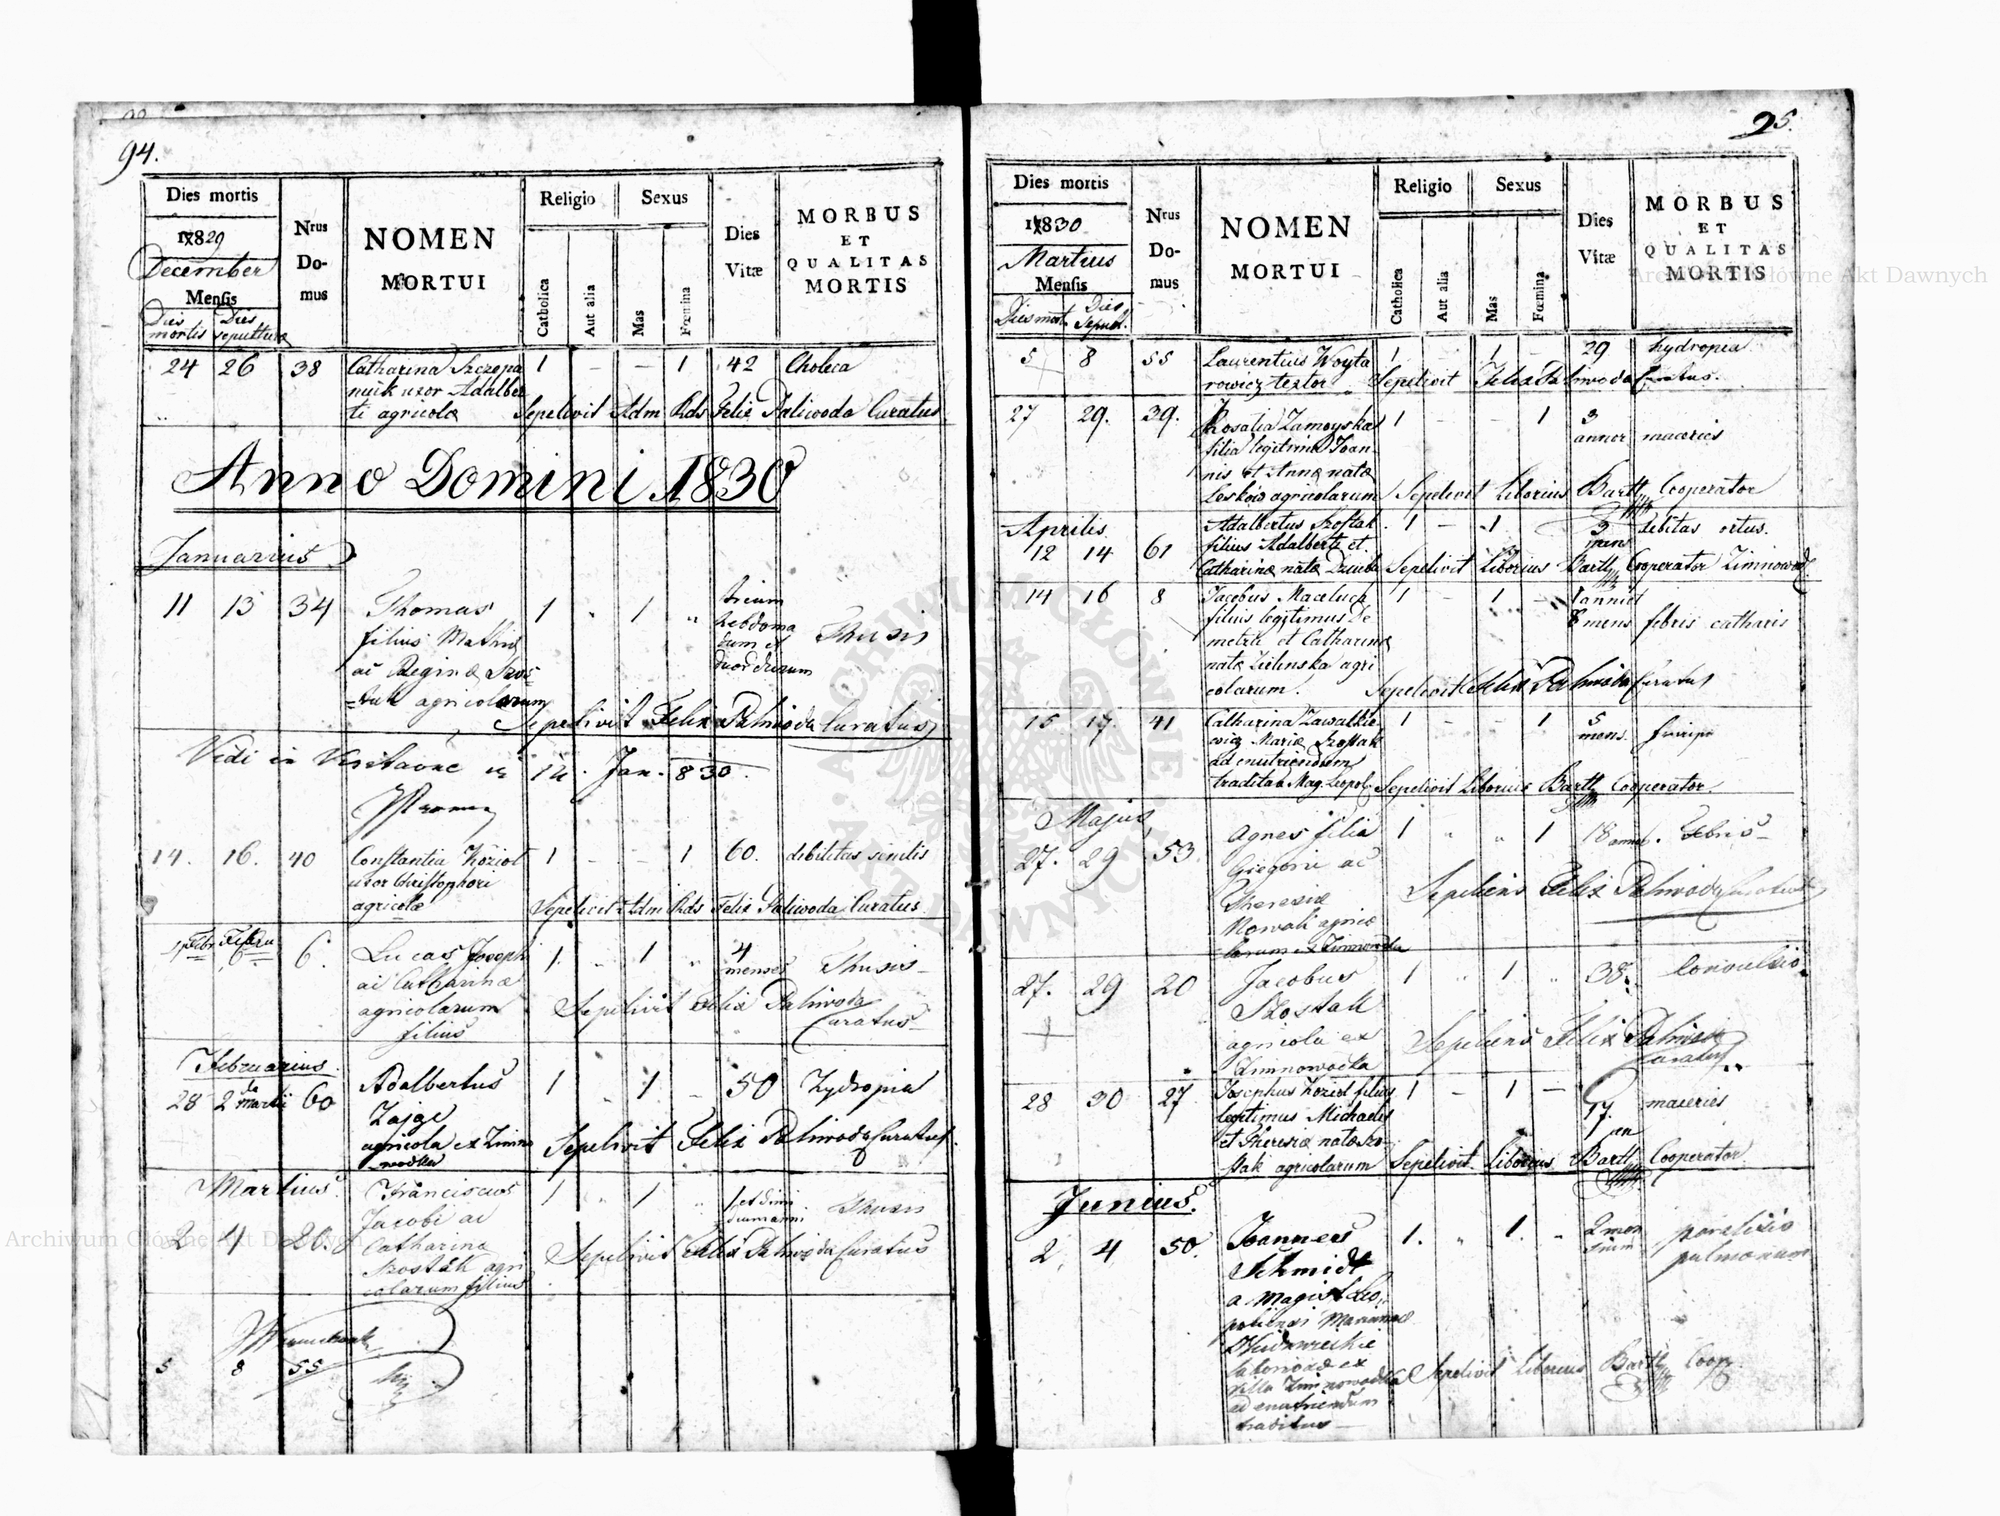 94.
Dies mortis
1829
December
Mensis
Dies mortis
Dies sepulturae
Nrus Domus
NOMEN
MORTUI
Religio
Catholica
Aut alia
Sexus
Mas
Fœmina
Dies Vitæ
MORBUS
ET
QUALITAS
MORTIS
24 26 38 Catharina Szczepa 1 – – 1 42 Cholera
niuk uxor Adalber
ti agricolæ Sepelivit Adm Rds Felix Paliwoda Curatus
Anno Domini 1830
Januarius
11 13 34 Thomas 1 " 1 " trium
filius Mathiæ hebdoma
ac Reginæ Szos dum et Thusis
tak agricolarum duor dierum
Sepelivit Felix Paliwoda Curatus
Vidi in 12. Jan. 830.
14. 16. 40 Constantia Kozioł 1 – – 1 60. debilitas senilis
uxor Christophori
agricolæ Sepelivit Adm Rds Felix Paliwoda Curatus
6. Lucas Joseph 1. " 1 " 4
ac Catharinæ menses Thusis
agricolarum Sepelivit Felix Paliwoda
filius Curatus
Februarius
28 2 da Martii 60 Adalbertus 1 " 1 – 50 Hydropia
Zając
agricola ex Zimno Sepelivit Felix Paliwoda Curatus
wodka
Martius
2 4 20. Franciscus 1 " 1 " 1 et dimi
Jacobi ac dium anni Thusis
Catharina Sepelivit Felix Paliwoda Curatus
Szostak agri
colarum filius
5 8 55
95.
Dies mortis
1830
Martius
Mensis
Dies mort.
Dies Sepult.
Nrus Domus
NOMEN
MORTUI
Religio
Catholica
Aut alia
Sexus
Mas
Fœmina
Dies Vitæ
MORBUS
ET
QUALITAS
MORTIS
5 8 55 Laurentius Woyta 1 – 1 – 29 hydropia
rowicz textor Sepelivit Felix Paliwoda Curatus.
27 29. 39. Rosalia Zamoyska 1 – – 1 3
filia legitima Joan annor macries
nis et Annæ natæ
Leśków agricolarum Sepelivit Liborius Bartl Cooperator
Aprilis.
12 14 61 Adalbertus Szostak 1 – 1 – 3 debitas ortus.
filius Adalberti et
Catharinæ natæ Sepelivit Liborius Bartl Cooperator Zimnowod.
14 16 8 Jacobus Maceluch 1 – 1 – 1 anni et
filius legitimus De 8 mens febris catharis
metri et Catharinæ
natæ Zielinska agri
colarum. Sepelivit Felix Paliwoda Curatus
15 17. 41 Catharina Zawalkie 1 – – 1 5
wicz Mariæ Szostak mens.
ad enutriendum
tradita a Mag. Leopol. Sepelivit Liborius Bartl Cooperator.
Majus
27. 29 53 Agnes filia 1 " " 1 18 annor. Febris
Gregorii ac
Theresiæ Sepeliens Felix Paliwoda Curatus
Nowak agrico
larum ex Zimnowodka
27. 29 20 Jacobus 1 " 1 " 38. Convulsio
Szostak
agricola ex Sepeliens Felix Paliwoda
Zimnowodka Curatus
28 30 27 Josephus Kozioł filius 1 – 1 – 17. macries
legitimus Michaelis an
et Theresiæ natæ Szo
stak agricolarum Sepelivit Liborius Bartl Cooperator
Junius.
2. 4 50. Joannes 1. " 1. " 2 men
Schmidt sium pulmonum
a Magist. Leo
poliensi Mariannæ
ex
villa Zimnowodka Sepelivit Liborius Bartl Coop.
ad enutriendum
traditus
Archiwum Główne Akt Dawnych
Archiwum Główne Akt Dawnych
ARCHIWUM GŁÓWNE AKT DAWNYCH